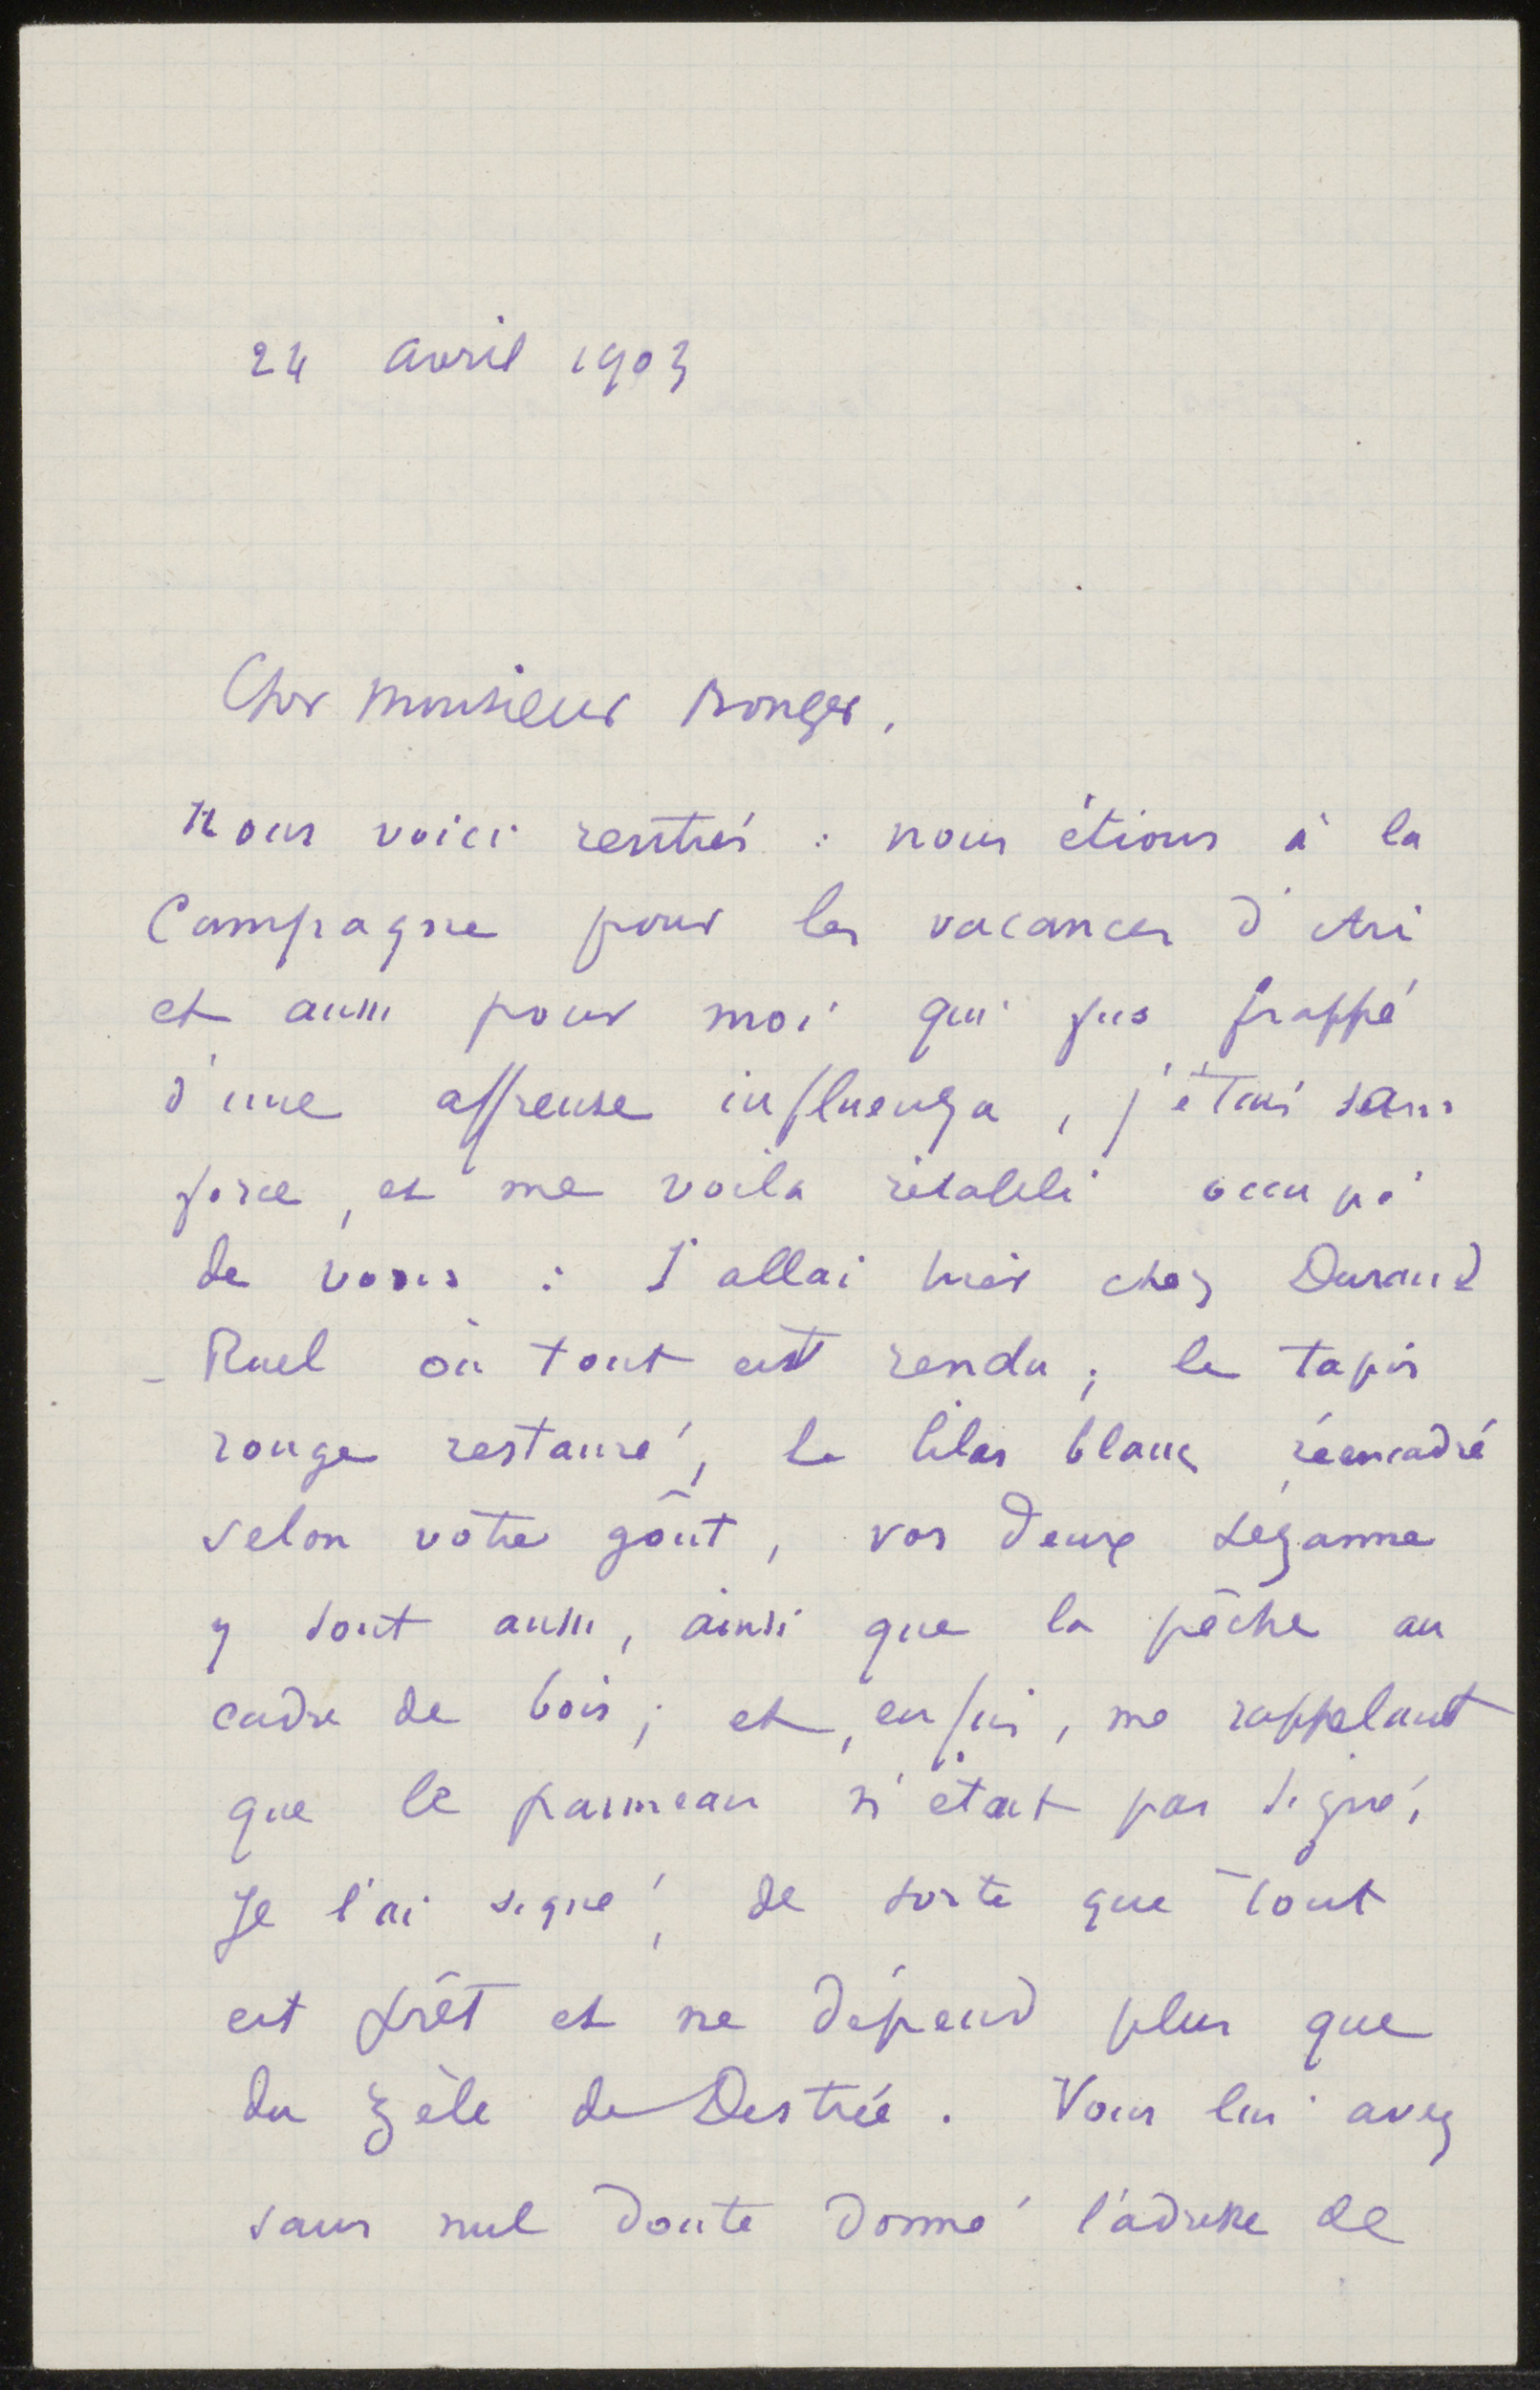 24 avril 1903
Cher Monsieur Bonger,
Nous voici rentrés : nous étions à la
Campagne pour les vacances d'Ari
et aussi pour moi qui fus frappé
d'une affreuse influenza, j'étais sans
force, et me voila rétabli occupé
de vous : J'allai hier chez Durand
- Ruel où tout est rendu ; le tapis
rouge restauré, le lilas blanc réencadré
selon votre goût, vos deux Sézanne
y sont aussi, ainsi que la pêche au
cadre de bois ; et, enfin, me rappelant
que le panneau n'était pas signé,
Je l'ai signé, de sorte que tout
est prêt et ne dépend plus que
du zèle de Destrée. Vous lui avez
sans nul doute donné l'adresse de